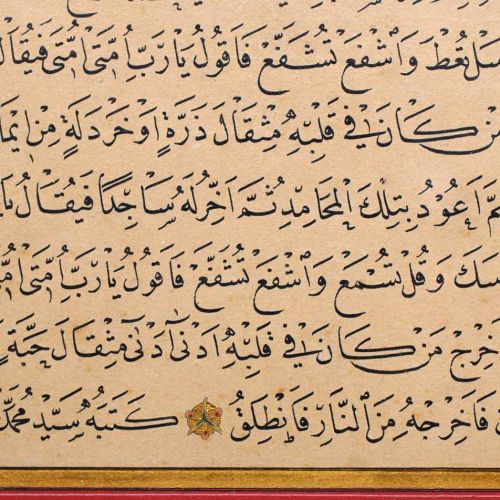 سَلْ تُعْطَ وَاشْفَعْ تُشَفَّعْ فَاَقُولُ يَارَبِّ اُمَّتِى اُمَّتِى فَيُقَالُ
مَنْ كَانَ فِي قَلْبِهِ مِثْقَالَ ذَرَّةٍ اَوْ خَرْدَلَةٍ مِنْ
ثُمَّ اَعُودُ بِتِلْكَ الْمَحَامِدِ ثُمَّ اَخِرُّ لَهُ سَاجِدًا فَيُقَالُ
وَقُلْ تُسْمَعْ وَاشْفَعْ تُشَفَّعْ فَاَقُولُ يَارَبِّ اُمَّتِى
مَنْ كَانَ فِي قَلْبِهِ اَدْنٰى اَدْنٰى مِثْقَالَ حَبَّةٍ
فَاَخْرِجْهُ مِنَ النَّارِ فَاَنْطَلِقُ كَتَبَهُ سَيِّدْ مُحَمَّدْ